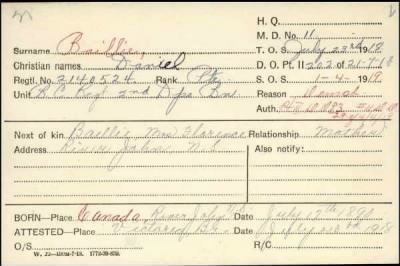 H. Q.
M. D. No. 11
Surname Baillie,
T. O. S. July 23rd 1918
Christian names Daniel
D. O. Pt. II 202 of 21-7-18
Regtl. No. 2140524 Rank Pte
S. O. S. 1-4-1919
Unit B.C. Regt 2nd Dpo Bn.
Reason Demob
Auth.
Next of kin Baillie Mrs Florence Relationship Mother
Address River John N.S. Also notify:
BORN—Place Canada River John N.S. Date July 12th 1890
ATTESTED—Place Victoria B.C. Date July 23rd 1918
O/S R/C